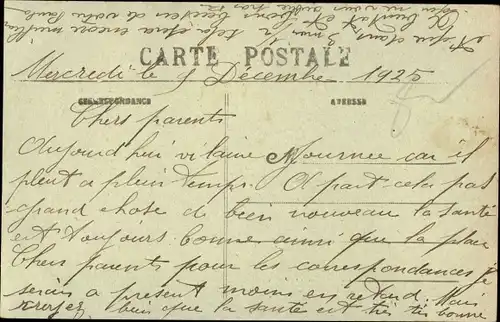 CARTE POSTALE
Mercredi le 5 Décembre 1925
CORRESPONDANCE
ADRESSE
Chers parents
Aujourd hui vilaine journee car il
pleut a plein temps. A part cela pas
grand chose de bien nouveau la santé
est toujours bonne ainsi que la
Chers parents pour les correspondances je
serais a present moins en retard. Mais
croyez bien que la santé est très très bonne
et que dans 3 mois cela fera encore